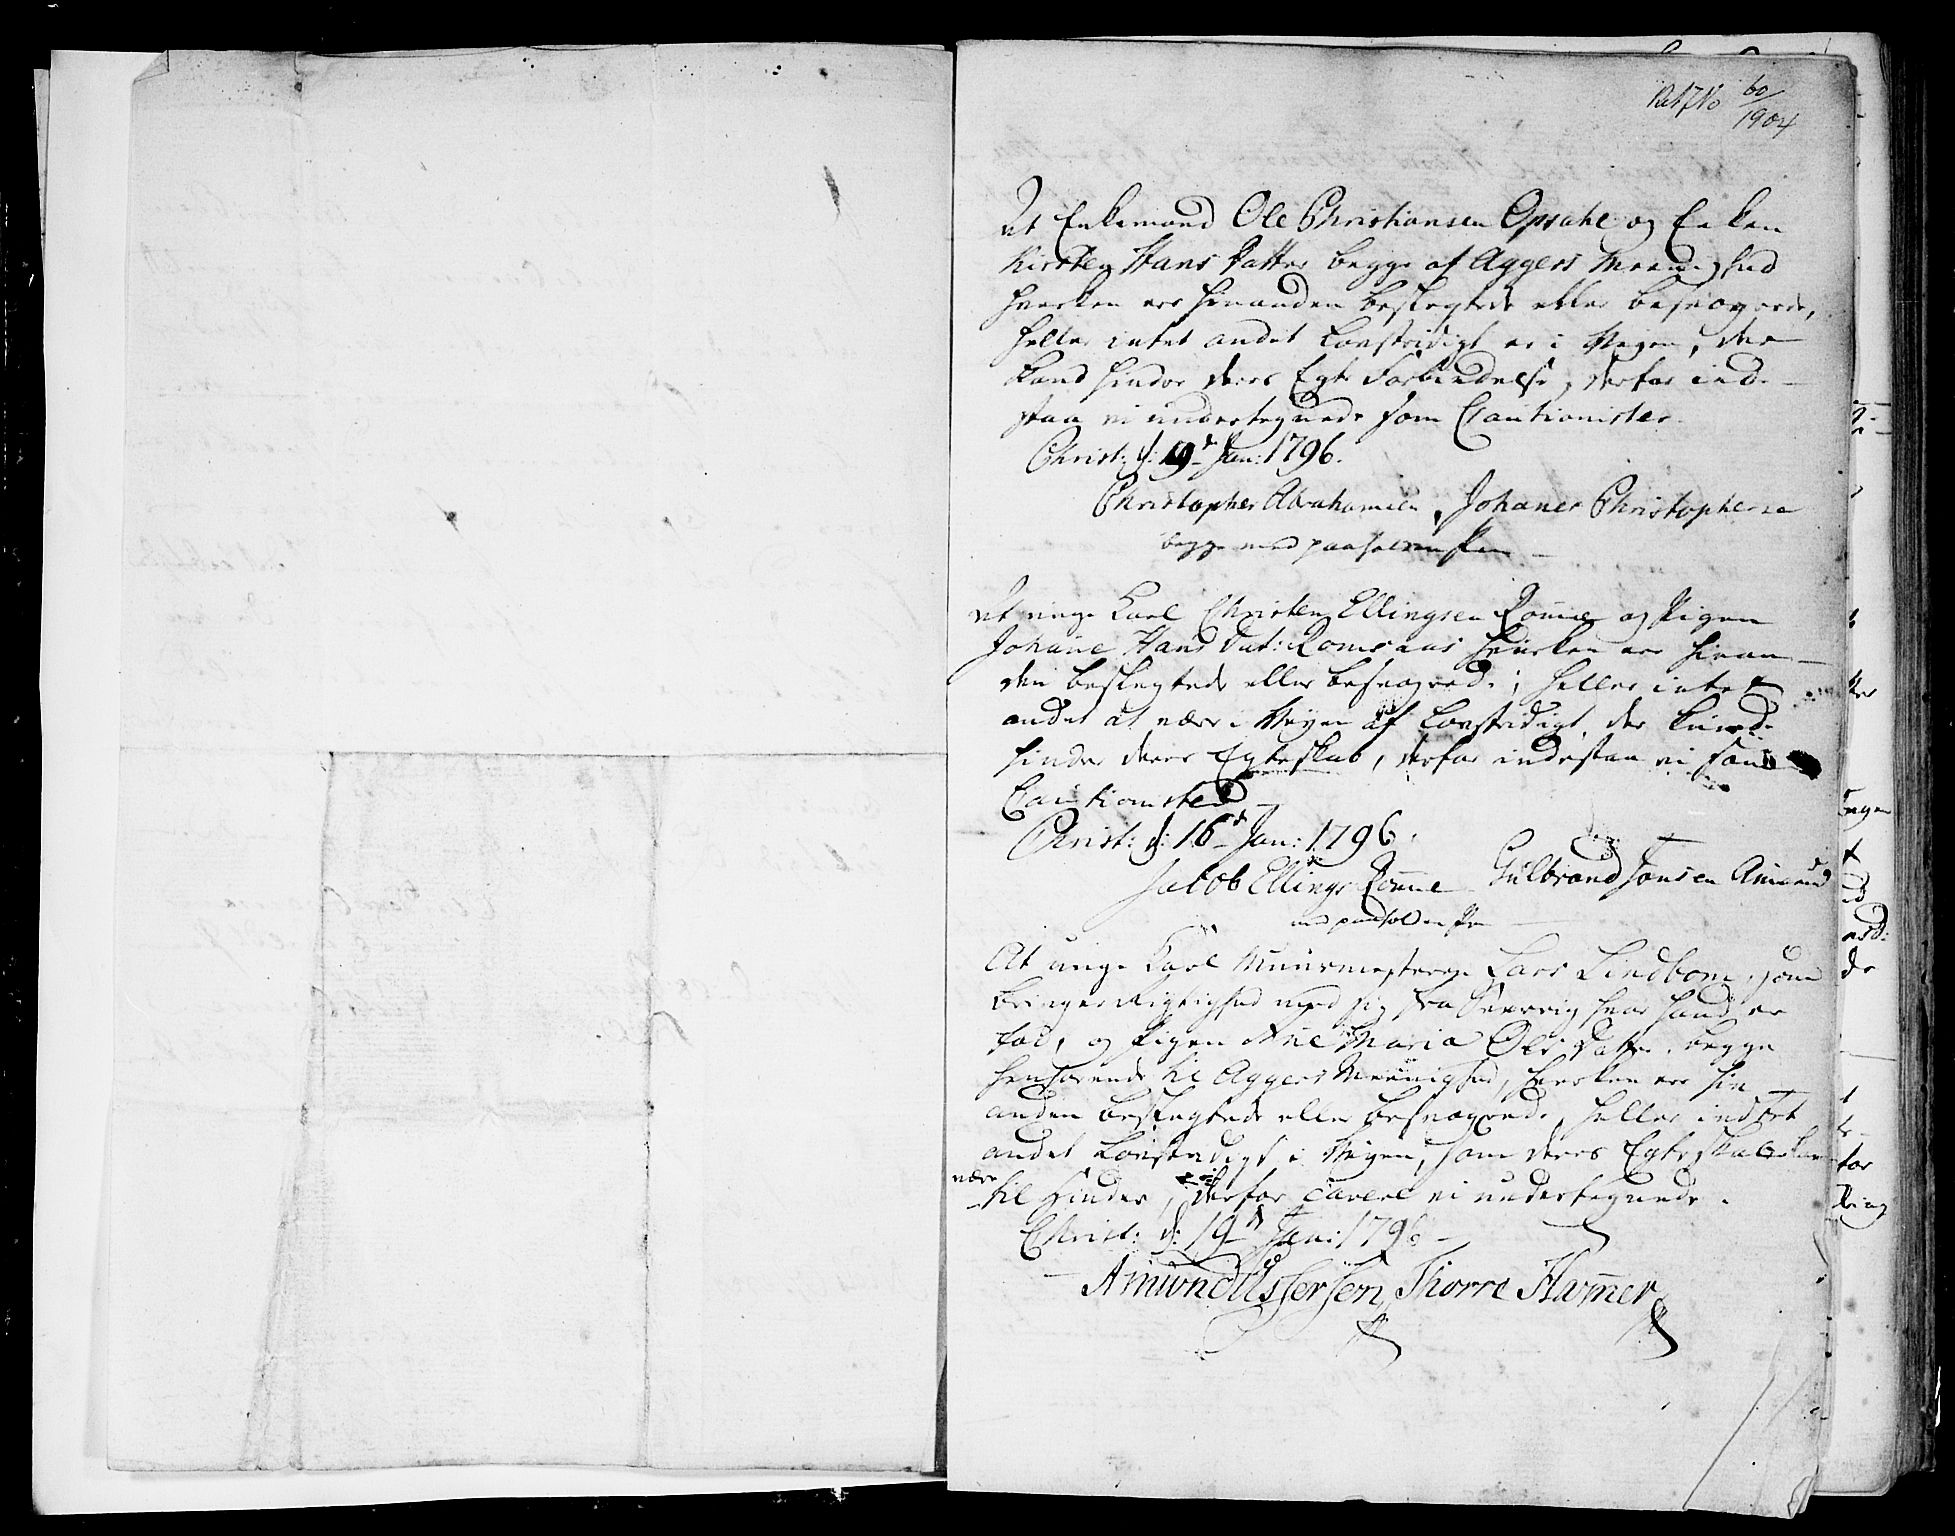 60/1904
At Enkemand Ole Christiansen Opsahl og Enken
Kirsten Hans Datter begge af Aggers Meenighed
hverken ere hinanden beslegtede eller besvogrede,
heller intet andet Lovstridigt er i Veyen, der
kand hindre deres Egte Forbindelse, derfor inde-
staa vi undertegnede som Cautionister.
Christ: d: 9d Jan: 1796.
Christopher Abrahamsen, Johanes Christophersen
begge med paaholden Pen
At unge Karl Christen Ellingsen Rønne og Pigen
Johane Hans Dat: Romsaas hverken ere hinan-
den beslegtede eller besvogrede; heller intet
andet at være i Veyen af Lovstridigt, der kunde
hindre deres Egteskab, derfor indestaa vi som
Cautionister
Christ: d: 16d Jan: 1796.
Jacob Ellings: Rønne Gulbrand Jonsen
med paaholden Pen
At unge Karl Muurmestersv: Lars Lindbom, som
bringer Rigtighed med sig fra Sverrig hvor hand er
fød, og Pigen Ane Maria Ols Datter, begge
henhørende til Aggers Meenighed, hverken ere hin-
anden beslegtede eller besvogrede, heller intet
andet Lovstridigt i Veyen, som deres Egteskab kan
være
til Hinder, derfor cavere vi undertegnede.
Christ: d: 19d Jan: 1796
Amund Assersen, Thorre Hamer